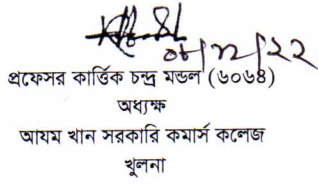 ০৮/১২/২২
প্রফেসর কার্ত্তিক চন্দ্র মন্ডল (৬০৬৪)
অধ্যক্ষ
আযম খান সরকারি কমার্স কলেজ
খুলনা